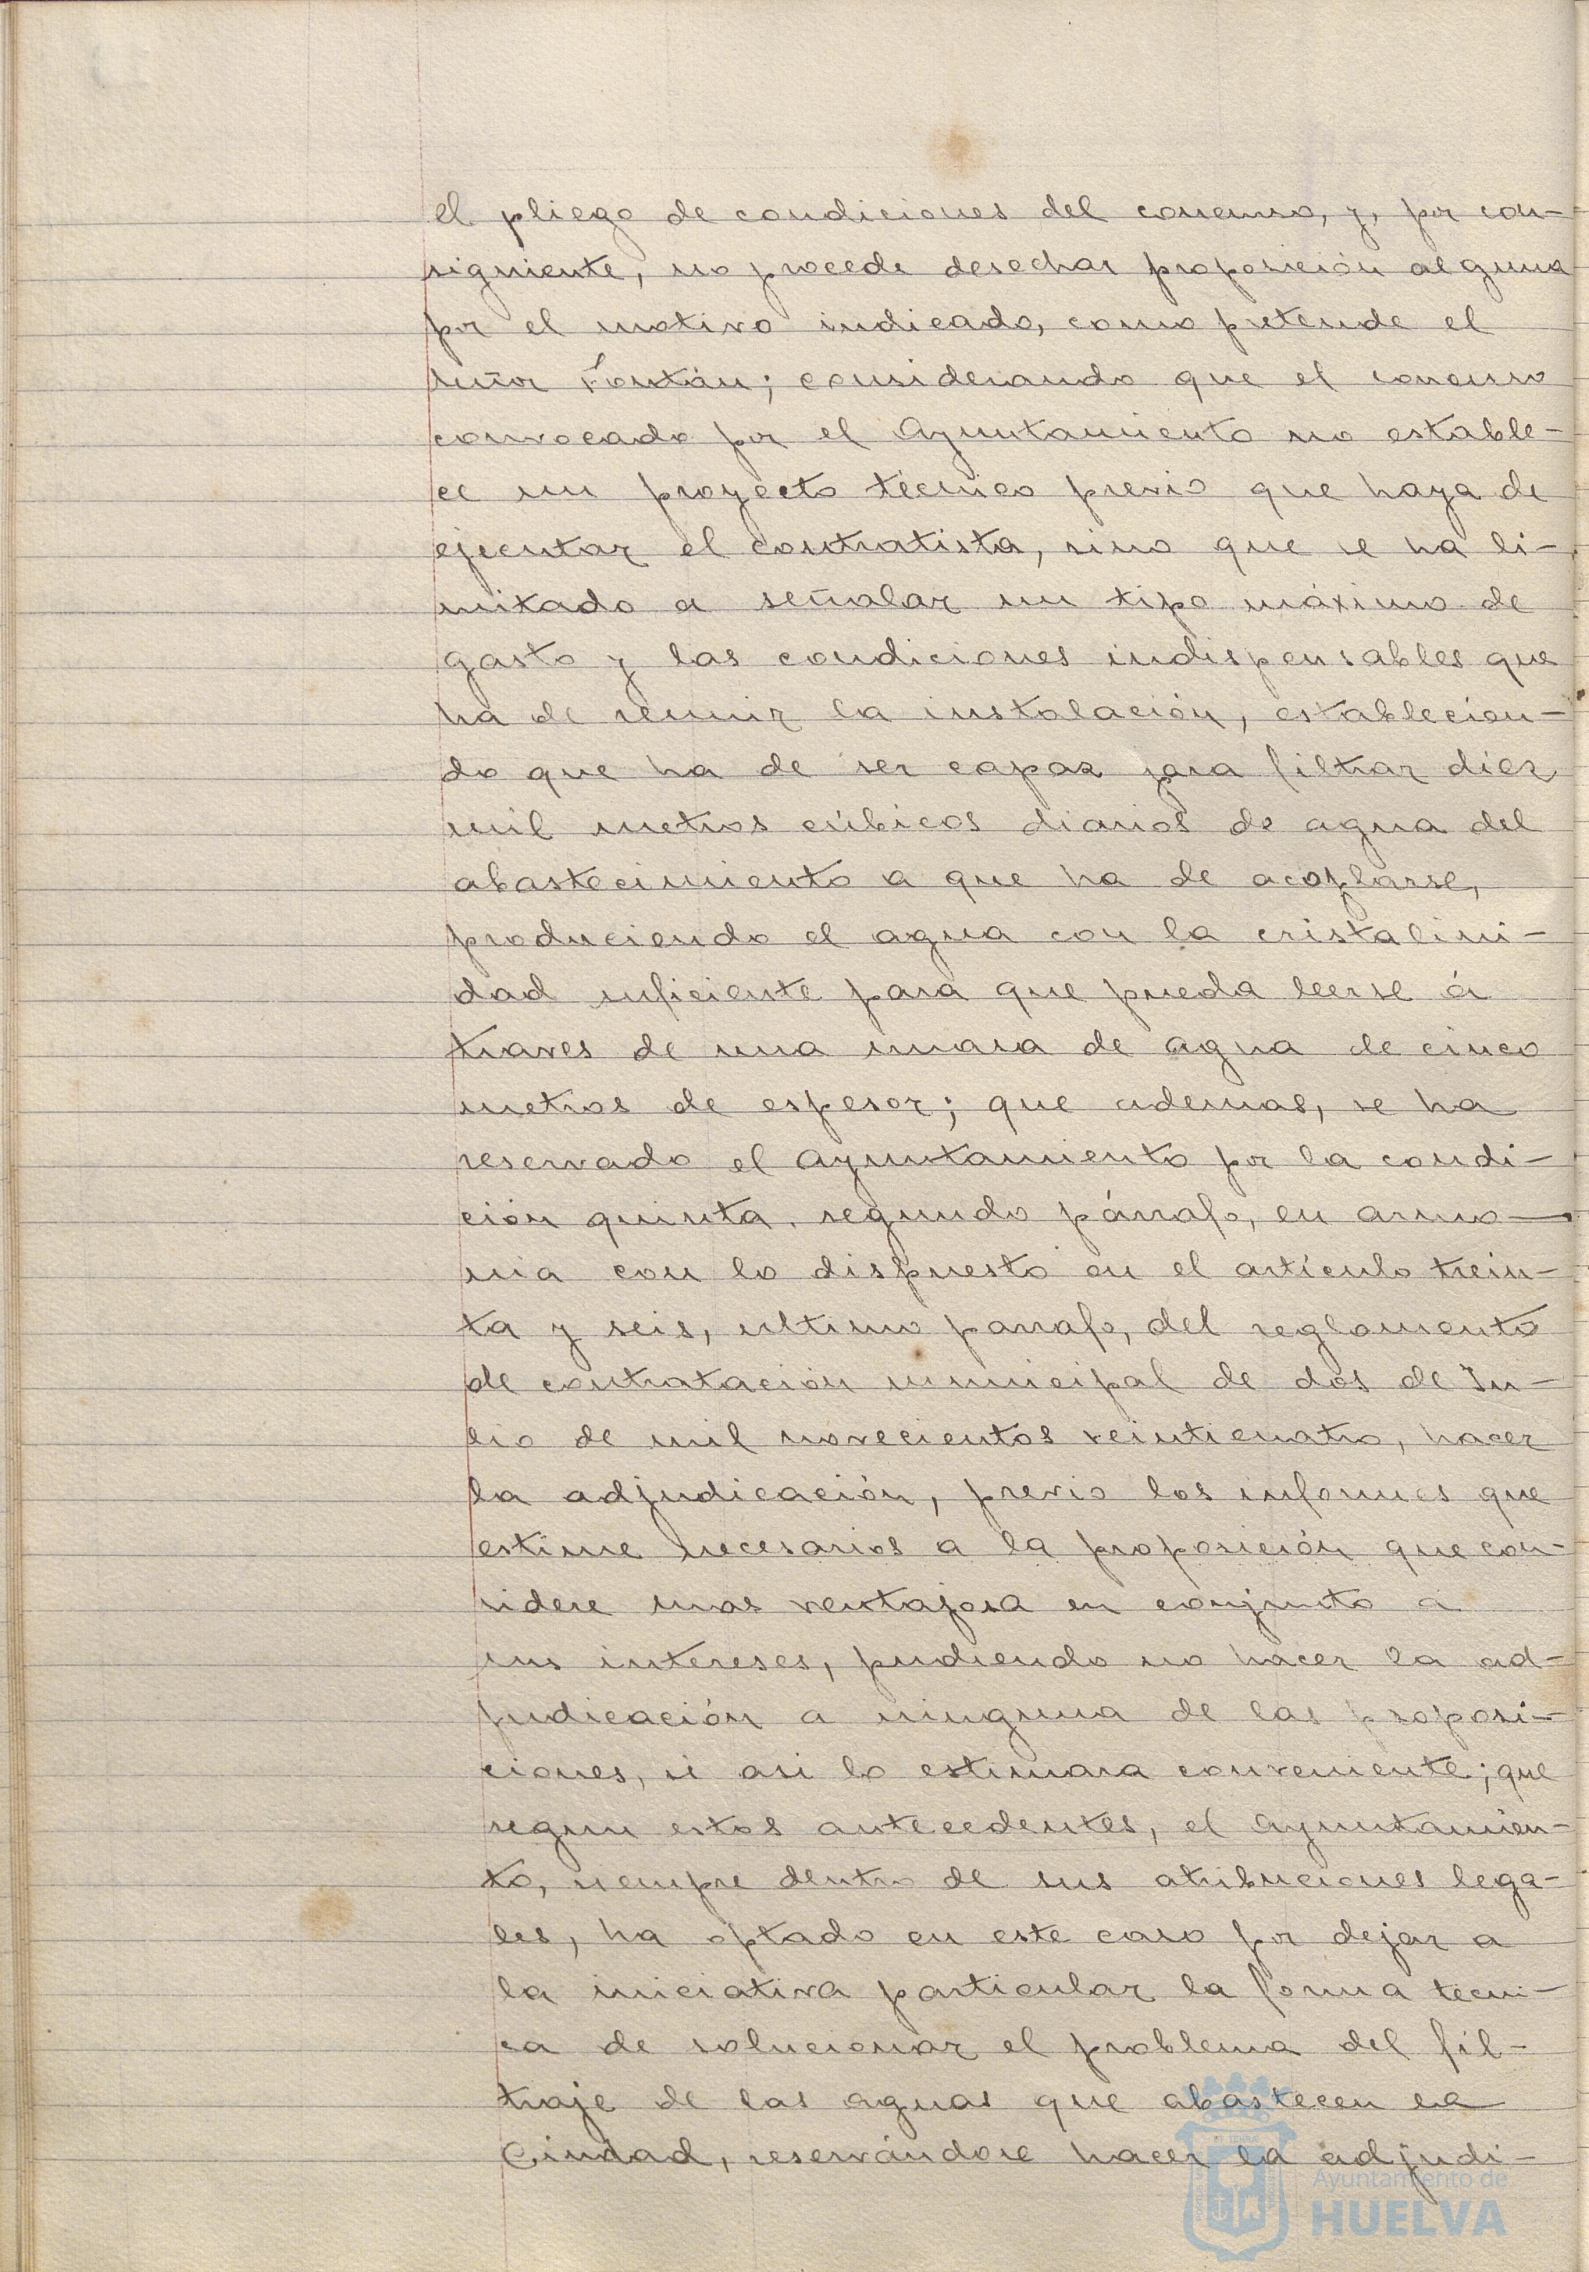 el pliego de condiciones del concurso, y, por con-
siguiente, no procede desechar proposición alguna
por el motivo indicado, como pretende el
señor Fontán; considerando que el concurso
convocado por el Ayuntamiento no estable-
ce un proyecto técnico previo que haya de
ejecutar el contratista, sino que se ha li-
mitado a señalar un tipo máximo de
gasto y las condiciones indispensables que
ha de reunir la instalación, establecien-
do que ha de ser capaz para filtrar diez
mil metros cúbicos diarios de agua del
abastecimiento a que ha de acoplarse,
produciendo el agua con la cristalini-
dad suficiente para que pueda leerse á
traves de una masa de agua de cinco
metros de espesor; que ademas, se ha
reservado el Ayuntamiento por la condi-
ción quinta, segundo párrafo, en armo-
nia con lo dispuesto en el artículo trein-
ta y seis, ultimo parrafo, del reglamento
de contratación municipal de dos de Ju-
lio de mil novecientos veinticuatro, hacer
la adjudicación, previo los informes que
estime necesarios a la proposición que con-
sidere mas ventajosa en conjunto a
sus intereses, pudiendo no hacer la ad-
judicación a ninguna de las proposi-
ciones, si asi lo estimara conveniente; que
segun estos antecedentes, el Ayuntamien-
to, siempre dentro de sus atribuciones lega-
les, ha optado en este caso por dejar a
la iniciativa particular la forma tecni-
ca de solucionar el problema del fil-
traje de las aguas que abastecen la
Ciudad, reservándose hacer la adjudi-
Ayuntamiento de
HUELVA